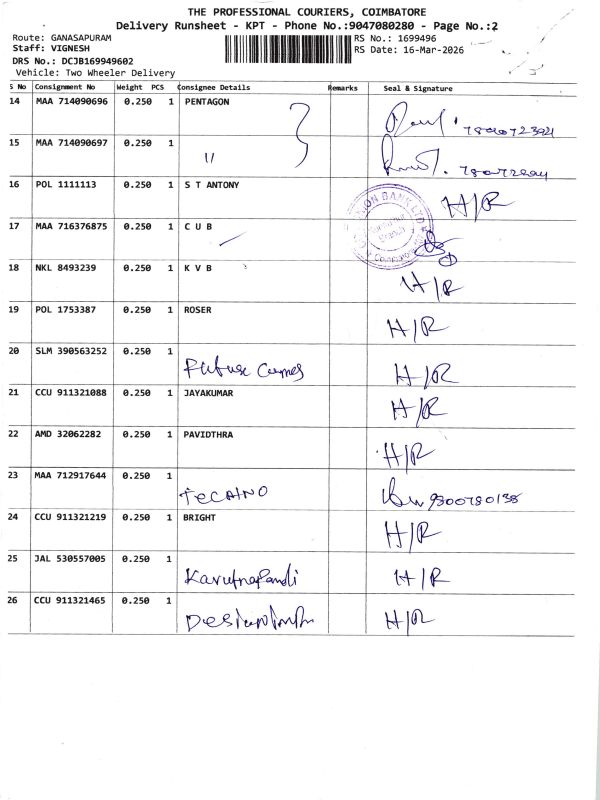 THE PROFESSIONAL COURIERS, COIMBATORE
Delivery Runsheet - KPT - Phone No.:9047080280 - Page No.:2
Route: GANASAPURAM RS No.: 1699496
Staff: VIGNESH RS Date: 16-Mar-2026
DRS No.: DCJB169949602
Vehicle: Two Wheeler Delivery
S No Consignment No Weight PCS Consignee Details Remarks Seal & Signature
14 MAA 714090696 0.250 1 PENTAGON
15 MAA 714090697 0.250 1 "
16 POL 1111113 0.250 1 S T ANTONY H/R
17 MAA 716376875 0.250 1 C U B
18 NKL 8493239 0.250 1 K V B H/R
19 POL 1753387 0.250 1 ROSER H/R
20 SLM 390563252 0.250 1 Future H/R
21 CCU 911321088 0.250 1 JAYAKUMAR H/R
22 AMD 32062282 0.250 1 PAVIDTHRA H/R
23 MAA 712917644 0.250 1 9300780138
24 CCU 911321219 0.250 1 BRIGHT H/R
25 JAL 530557005 0.250 1 H/R
26 CCU 911321465 0.250 1 H/R